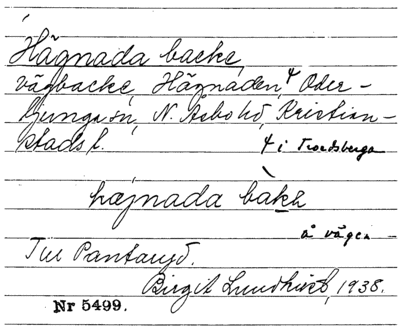 Hägnada backe
vägbacke, Hägnaden, 4 Oder-
ljunga sn, N. Åsbo hd, Kristian-
stads l. 4 i Trondsberga
häjnada bàkə
å vägen -
Till Pantaryd.
Birgit Lundkvist, 1938.
Nr 5499.